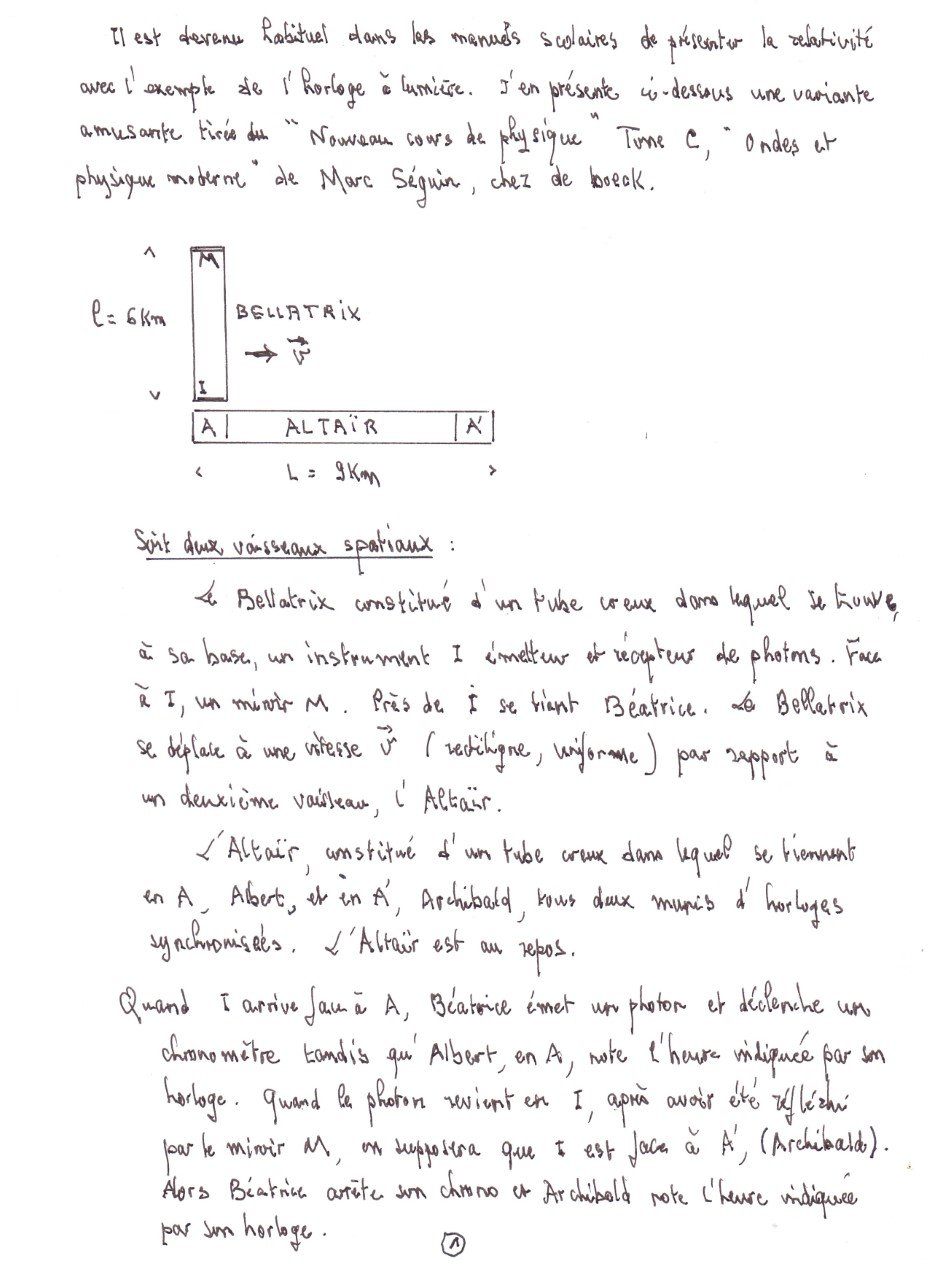 Il est devenu habituel dans les manuels scolaires de présenter la relativité
avec l'exemple de l'horloge à lumière. J'en présente ci-dessous une variante
amusante tirée du "Nouveau cours de physique" Tome C, "Ondes et
physique moderne" de Marc Séguin, chez de boeck.
M
l = 6 Km
BELLATRIX
→ v
I
A ALTAÏR A'
L = 9 Km
Soit deux vaisseaux spatiaux :
Le Bellatrix constitué d'un tube creux dans lequel se trouve,
à sa base, un instrument I émetteur et récepteur de photons. Face
à I, un miroir M. Près de I se tient Béatrice. Le Bellatrix
se déplace à une vitesse v (rectiligne, uniforme) par rapport à
un deuxième vaisseau, l'Altaïr.
L'Altaïr, constitué d'un tube creux dans lequel se tiennent
en A, Albert, et en A', Archibald, tous deux munis d'horloges
synchronisées. L'Altaïr est au repos.
Quand I arrive face à A, Béatrice émet un photon et déclenche un
chronomètre tandis qu'Albert, en A, note l'heure indiquée par son
horloge. Quand le photon revient en I, après avoir été réfléchi
par le miroir M, on supposera que I est face à A', (Archibald).
Alors Béatrice arrête son chrono et Archibald note l'heure indiquée
par son horloge.
1